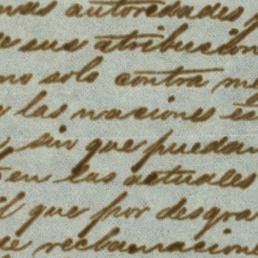 mas autoridades
de sus atribucion
no solo contra me
y las naciones es
y sin que puedan
en las actuales
que por desgra
de reclamacione